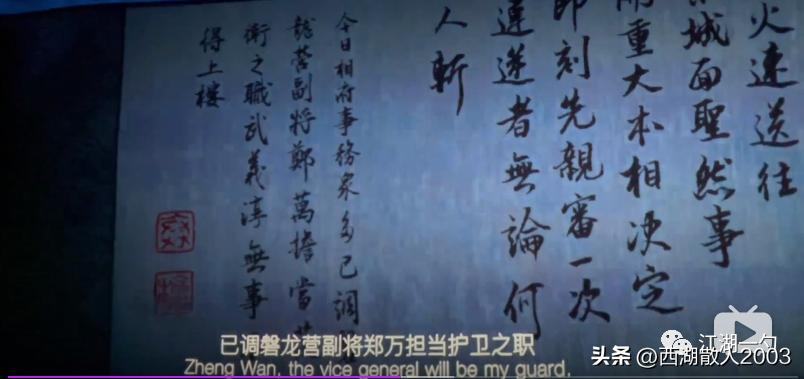 火速送往
城面聖然事
重大本相决定
即刻先親審一次
者無論何
人斬
今日相府事務衆多已調
龍營副將鄭萬擔當
衛之職武義淳無事
得上樓
已调磐龙营副将郑万担当护卫之职
Zheng Wan, the vice general will be my guard.
江湖一勺
头条 @西湖散人2003